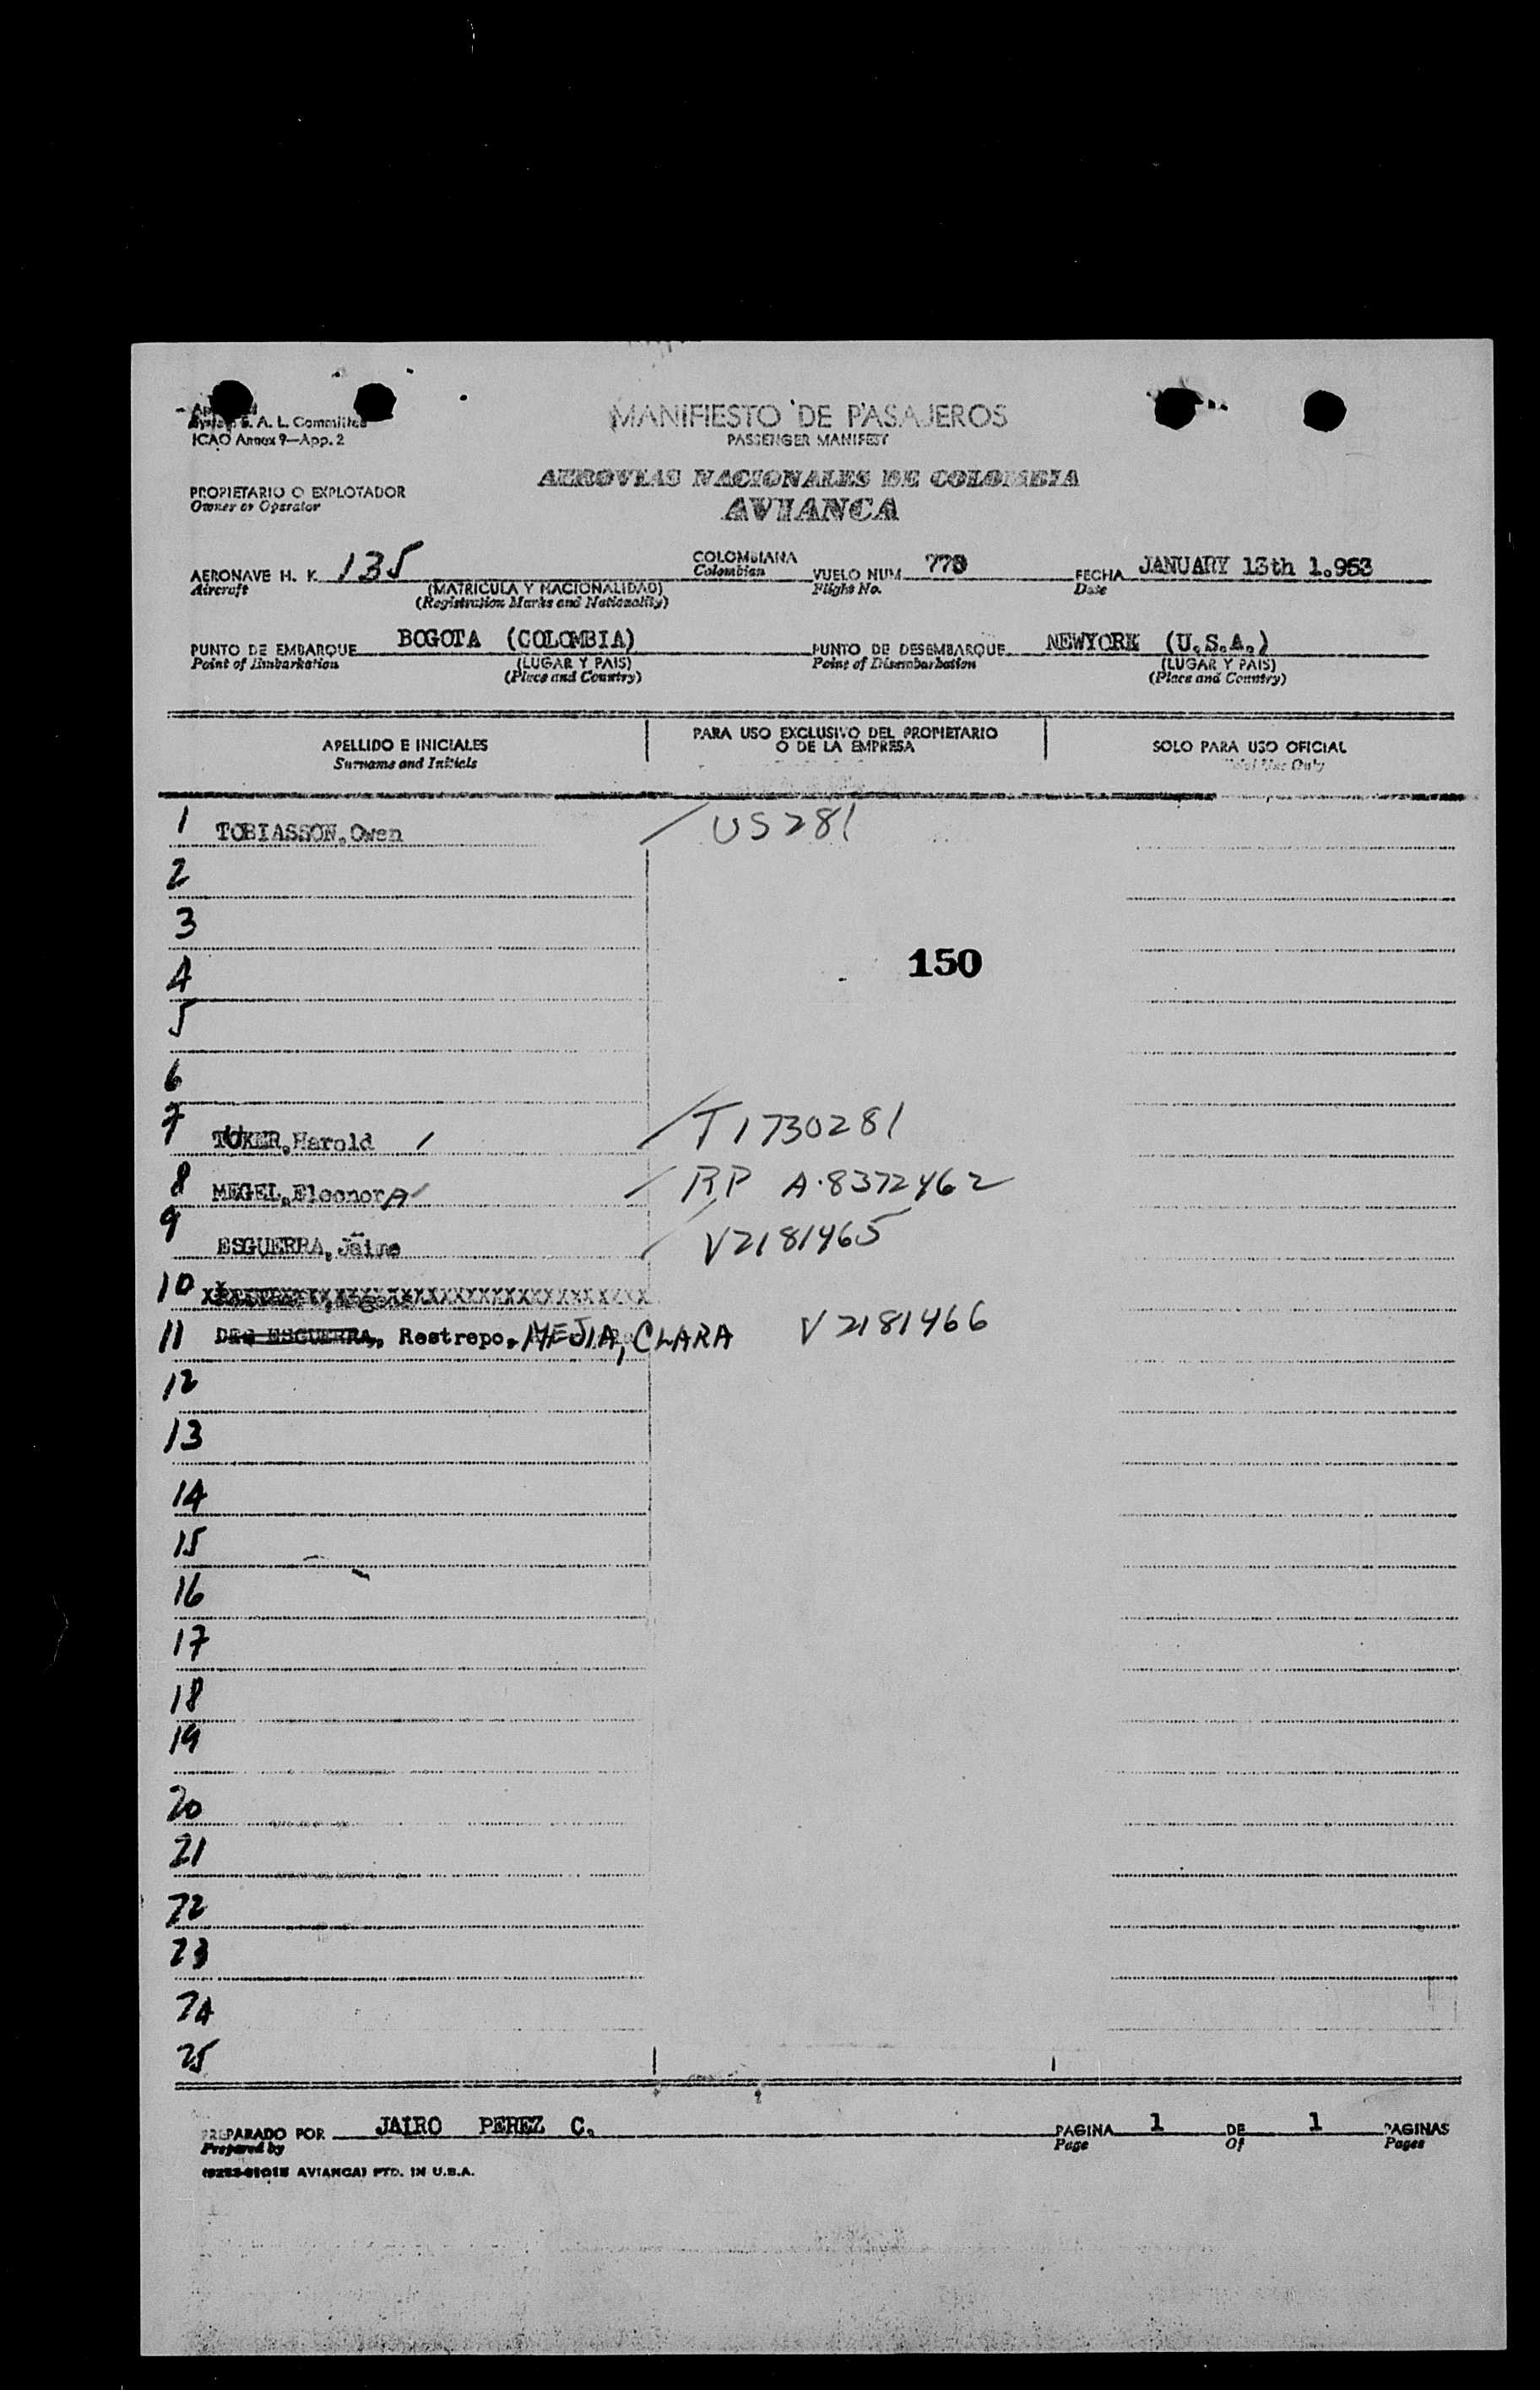 S. A. L. Committee
ICAO Annex 9—App. 2
MANIFIESTO DE PASAJEROS
PASSENGER MANIFEST
PROPIETARIO O EXPLOTADOR
Owner or Operator
AEROVIAS NACIONALES DE COLOMBIA
AVIANCA
AERONAVE H. K. 135 COLOMBIANA VUELO NUM. FECHA JANUARY 13th 1.953
Aircraft (MATRICULA Y NACIONALIDAD) Colombian Flight No. Date
(Registration Marks and Nationality)
PUNTO DE EMBARQUE BOGOTA (COLOMBIA) PUNTO DE DESEMBARQUE NEWYORK (U.S.A.)
Point of Embarkation (LUGAR Y PAIS) Point of Disembarkation (LUGAR Y PAIS)
(Place and Country) (Place and Country)
APELLIDO E INICIALES PARA USO EXCLUSIVO DEL PROPIETARIO O DE LA EMPRESA SOLO PARA USO OFICIAL
Surname and Initials Use Only
1 TOBIASSON, Owen US281
2
3
150
4
5
6
7 TUKER, Harold T1730281
8 MEGEL, EleonorA RP A-8372462
9 ESGUERRA, Jaime V2181465
10
11 DE ESGUERRA, Restrepo. MEJIA, CLARA V2181466
12
13
14
15
16
17
18
19
20
21
22
23
24
25
PREPARADO POR JAIRO PEREZ C. PAGINA 1 DE 1 PAGINAS
Prepared by Page Of Pages
AVIANCA) PTD. IN U.S.A.